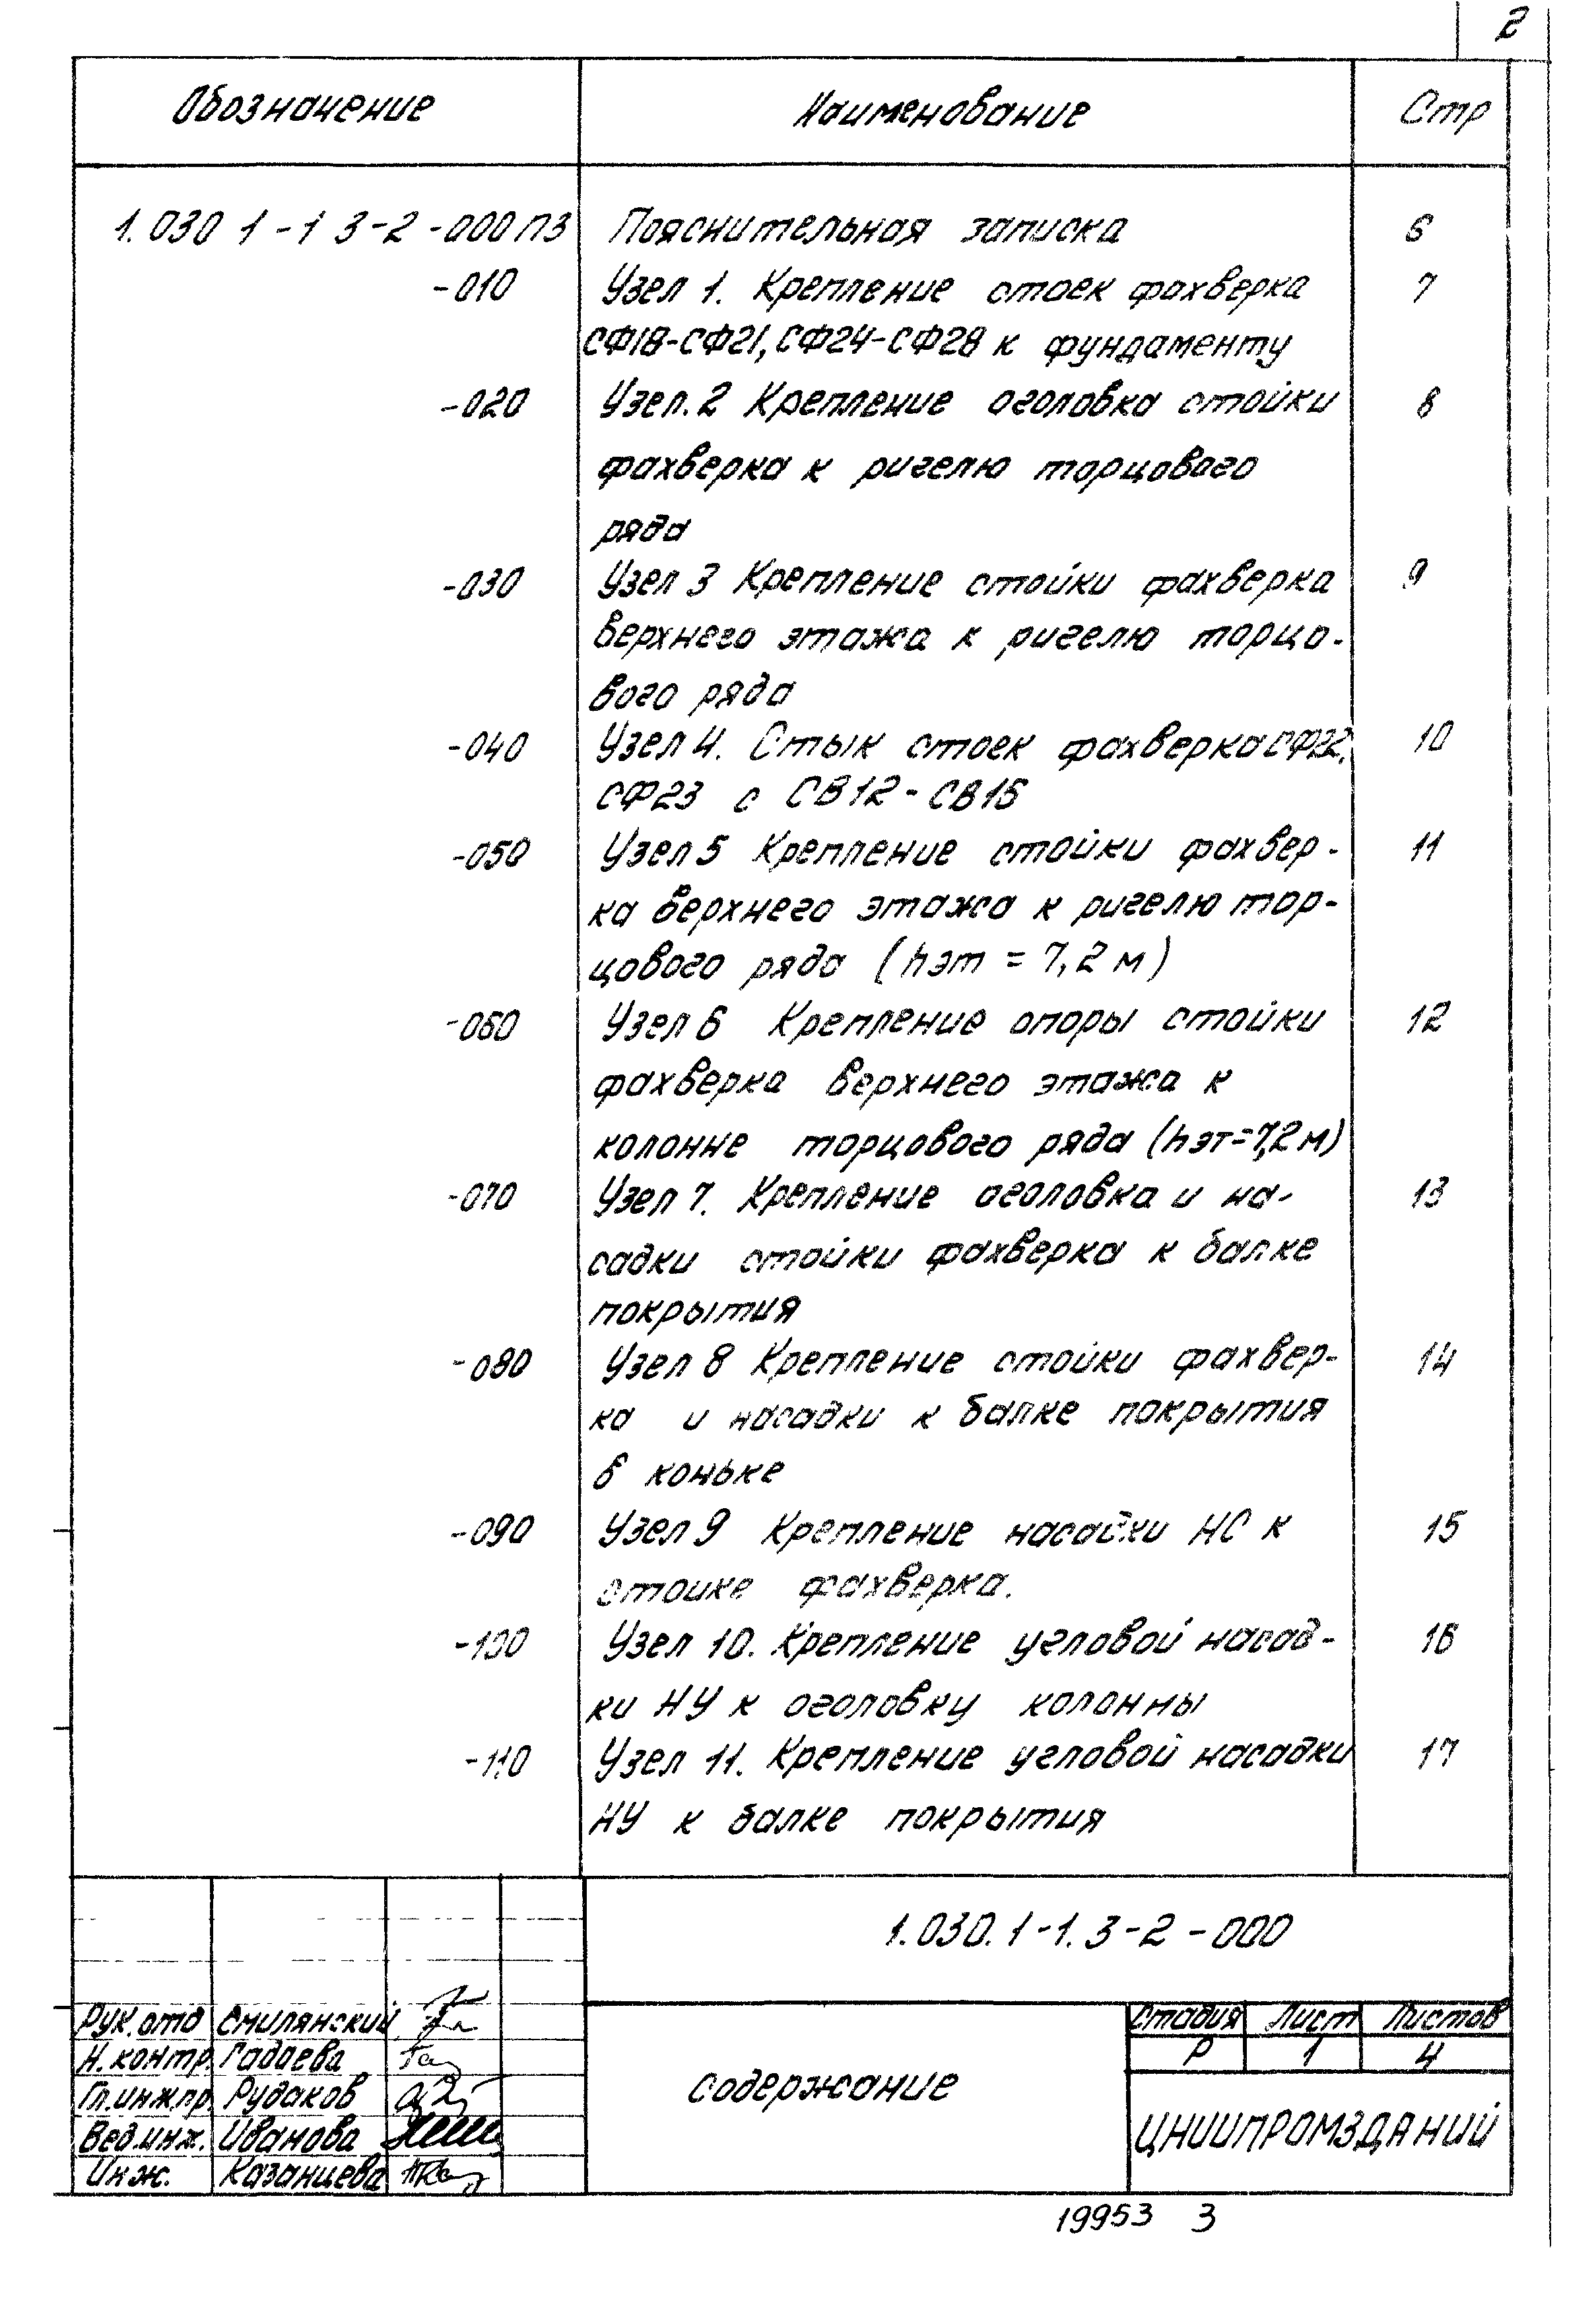 2
Обозначение Наименование Стр
1.030 1-1 3-2-000ПЗ Пояснительная записка 6
-010 Узел 1. Крепление стоек фахверка 7
СФ18-СФ21, СФ24-СФ28 к фундаменту
-020 Узел.2 Крепление оголовка стойки 8
фахверка к ригелю торцового
ряда
-030 Узел 3 Крепление стойки фахверка 9
верхнего этажа к ригелю торцо-
вого ряда
-040 Узел 4. Стык стоек фахверка СФ22, 10
СФ23 с СВ12-СВ15
-050 Узел 5 Крепление стойки фахвер- 11
ка верхнего этажа к ригелю тор-
цового ряда (hэт = 7,2 м)
-060 Узел 6 Крепление опоры стойки 12
фахверка верхнего этажа к
колонне торцового ряда (hэт=7,2м)
-070 Узел 7. Крепление оголовка и на- 13
садки стойки фахверка к балке
покрытия
-080 Узел 8 Крепление стойки фахвер- 14
ка и насадки к балке покрытия
в коньке
-090 Узел 9 Крепление насадки НС к 15
стойке фахверка.
-100 Узел 10. Крепление угловой насад- 16
ки НУ к оголовку колонны
-110 Узел 11. Крепление угловой насадки 17
НУ к балке покрытия
1.030.1-1.3-2-000
Рук.отд Смилянский Стадия Лист Листов
Н.контр. Гадаева Р 1 4
Гл.инж.пр. Рудаков содержание
Вед.инж. Иванова ЦНИИПРОМЗДАНИЙ
Инж. Казанцева
19953 3